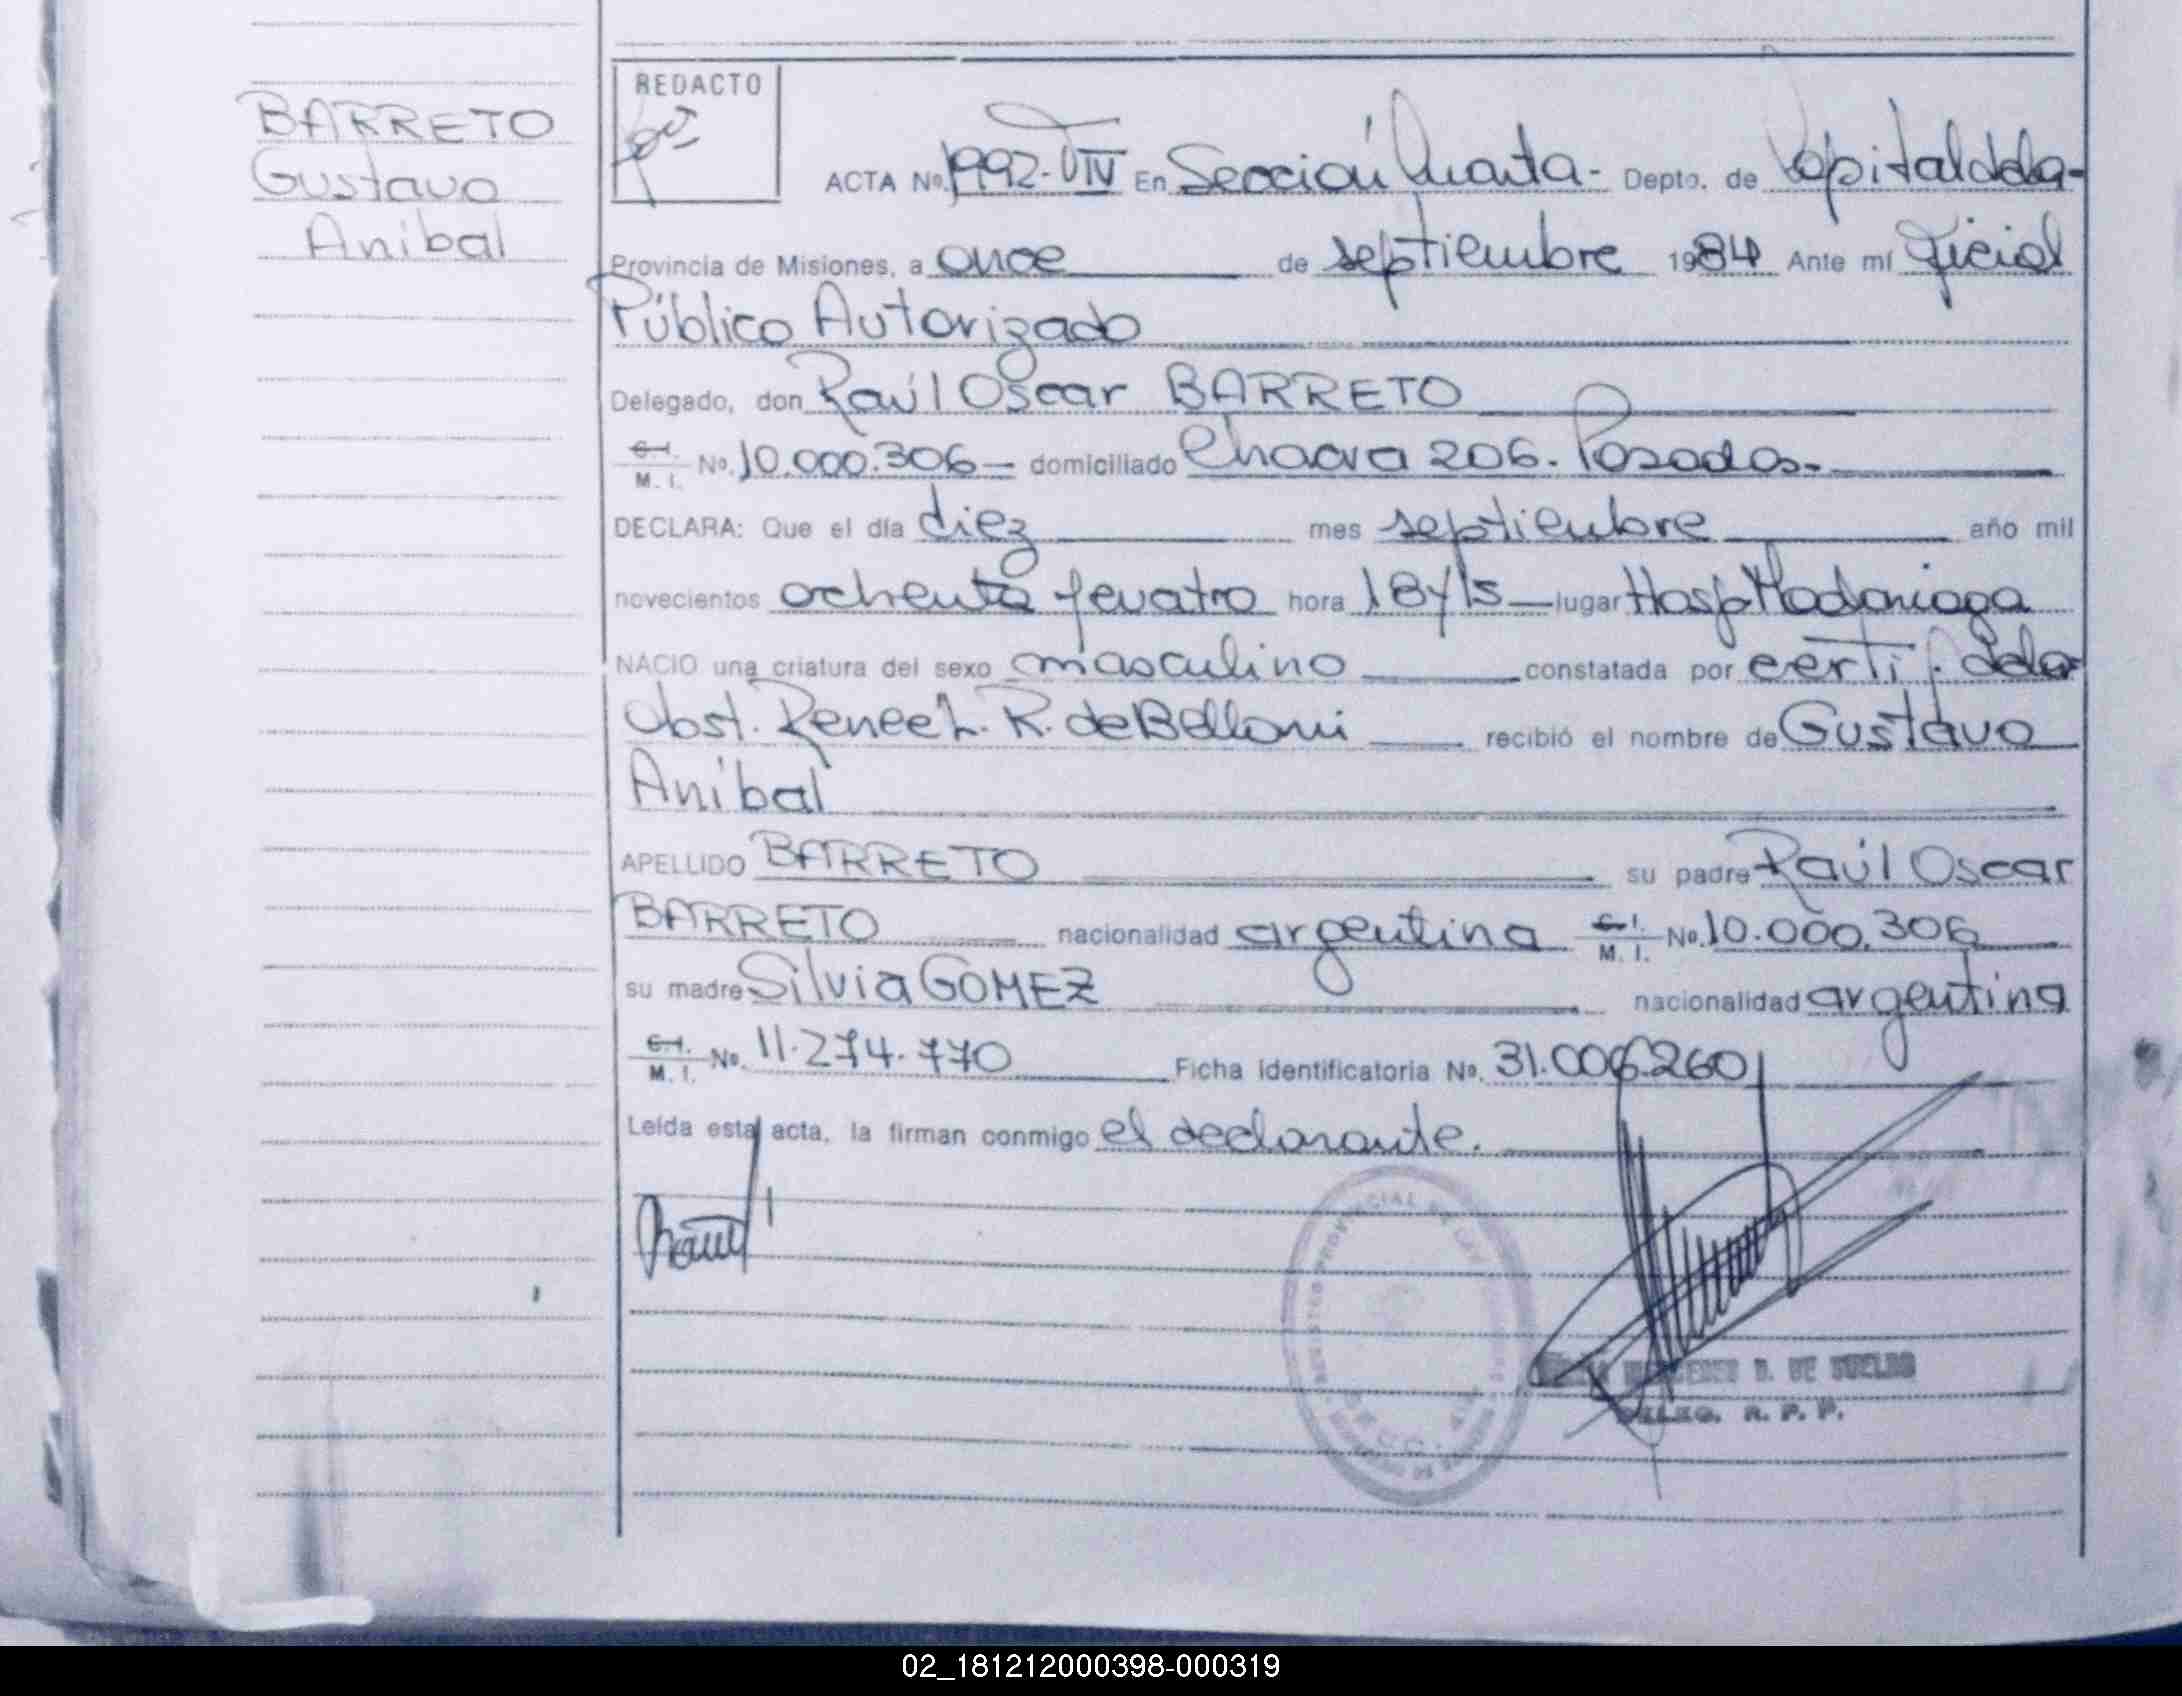 BARRETO
Gustavo
Anibal
REDACTO
ACTA Nº. 1992-TIV En Sección Cuarta- Depto. de Capital dela-
Provincia de Misiones, a once de septiembre 1984 Ante mí Oficial
Público Autorizado
Delegado, don Raúl Oscar BARRETO
C.I. M. I. Nº. 10.000.306- domiciliado Chacra 206. Posadas-
DECLARA: Que el día diez mes septiembre año mil
novecientos ochenta y cuatro hora 18y15 lugar Hosp Madariaga
NACIO una criatura del sexo masculino constatada por certif. dela
Obst. Renee L. R. de Belloni recibió el nombre de Gustavo
Anibal
APELLIDO BARRETO su padre Raúl Oscar
BARRETO nacionalidad argentina C.I. M. I. Nº. 10.000.306
su madre Silvia GOMEZ nacionalidad argentina
C.I. M. I. Nº. 11.274.770 Ficha identificatoria Nº. 31.006.260
Leída esta acta, la firman conmigo el declarante.
D. DE SUELDO
DELEG. R. P. P.
02_181212000398-000319